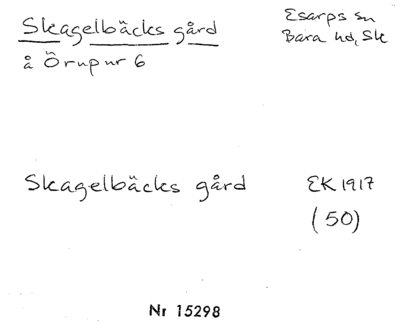 Skagelbäcks gård
å Örup nr 6
Esarps sn
Bara hd, Sk
Skagelbäcks gård
EK 1917
(50)
Nr 15298